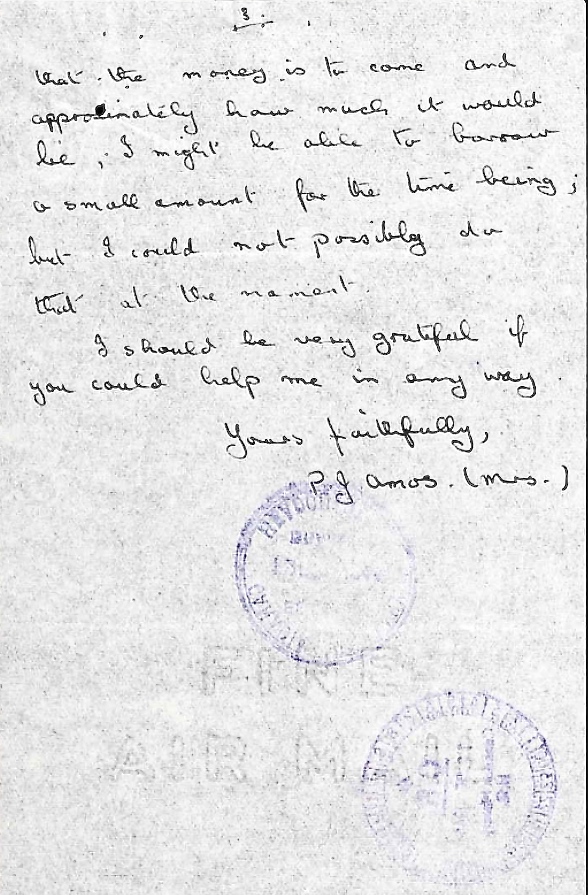 3.
that the money is to come and
approximately how much it would
be, I might be able to borrow
a small amount for the time being;
but I could not possibly do
that at the moment.
I should be very grateful if
you could help me in any way.
Yours faithfully,
P J Amos. (Mrs.)
AIR MAIL